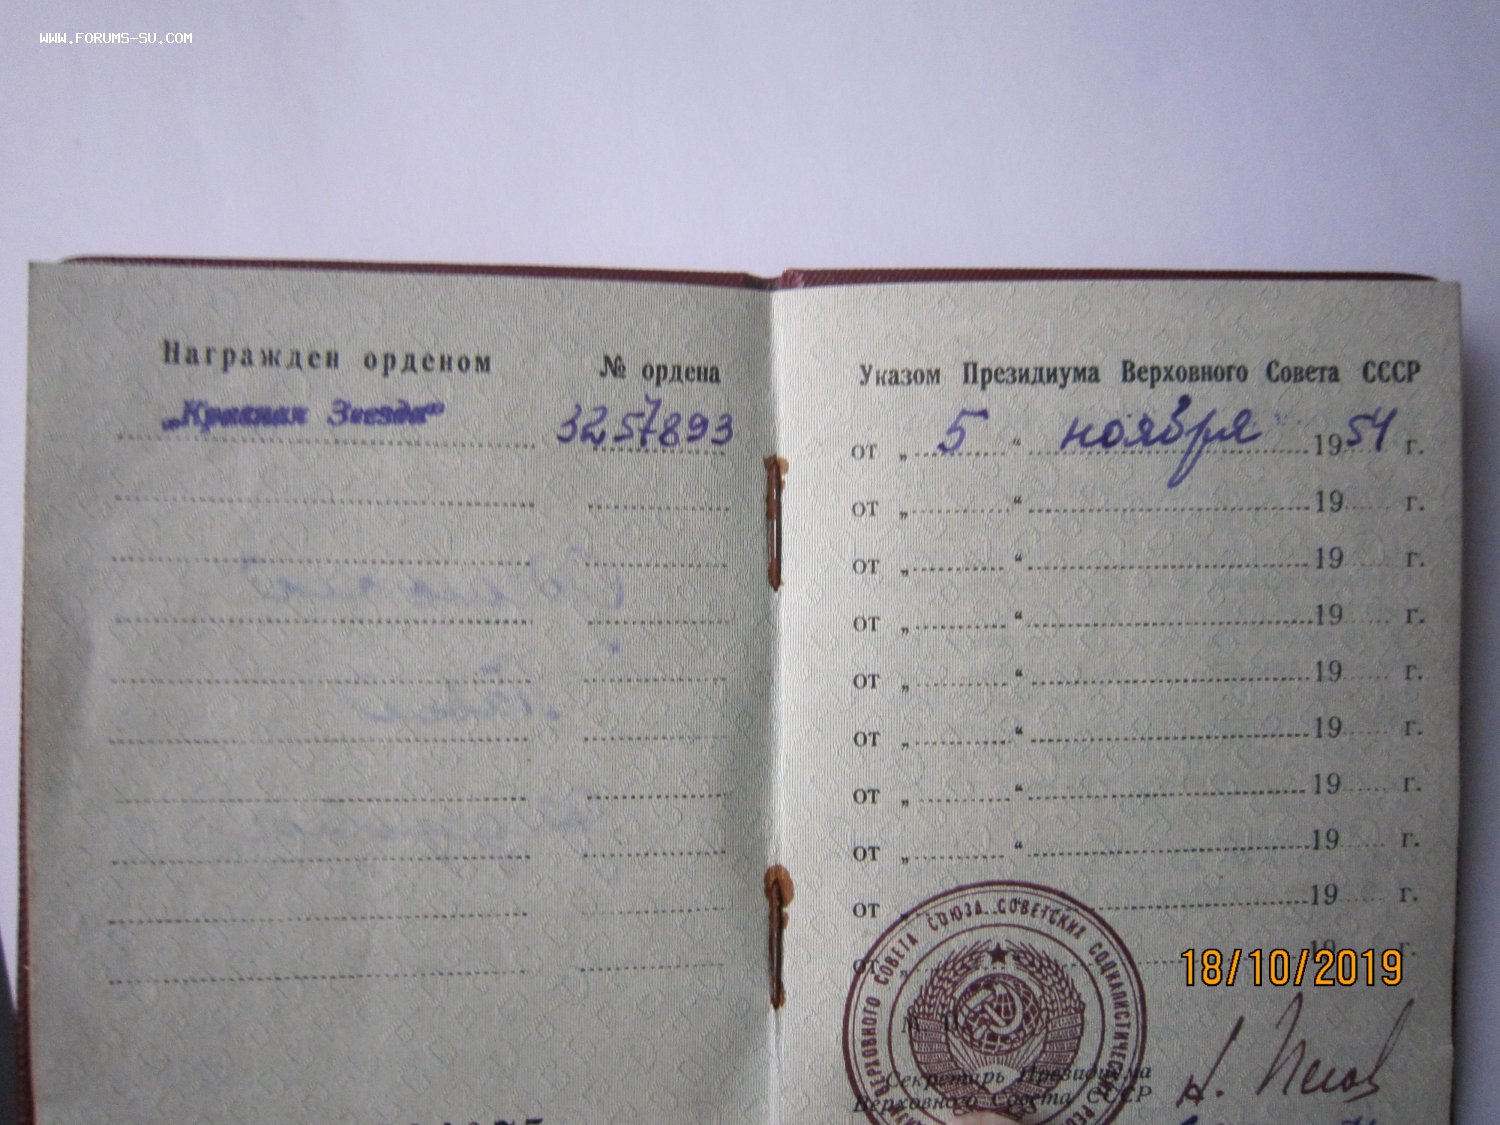 WWW.FORUMS-SU.COM
Награжден орденом № ордена
„Красная Звезда“ 3257893
Указом Президиума Верховного Совета СССР
от „ 5 “ ноября 1954 г.
от „ “ 19 г.
от „ “ 19 г.
от „ “ 19 г.
от „ “ 19 г.
от „ “ 19 г.
от „ “ 19 г.
от „ “ 19 г.
от „ 19 г.
от „ 19 г.
18/10/2019
ВЕРХОВНОГО СОВЕТА СОЮЗА СОВЕТСКИХ СОЦИАЛИСТИЧЕСКИХ
Секретарь Президиума
Верховного Совета СССР
Н. Пегов